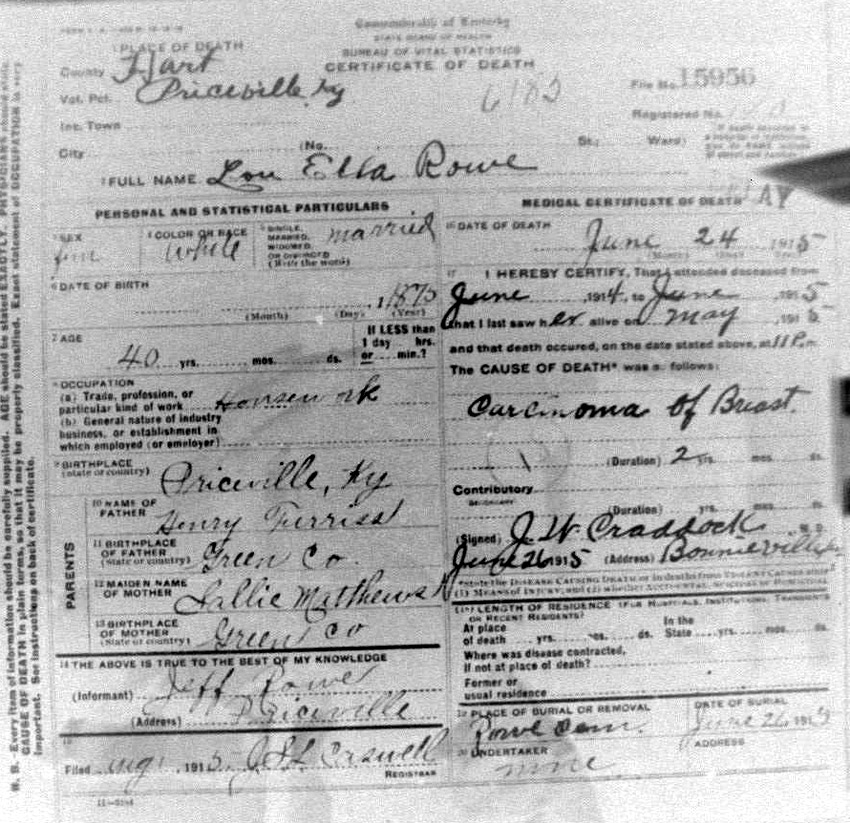 Commonwealth of Kentucky
STATE BOARD OF HEALTH
BUREAU OF VITAL STATISTICS
CERTIFICATE OF DEATH
1 PLACE OF DEATH
County Hart
Vot. Pct. Priceville, Ky
6185
File No. 15956
Registered No.
Inc. Town
City (No. St.; Ward)
2 FULL NAME Lou Ella Rowe
PERSONAL AND STATISTICAL PARTICULARS
3 SEX fem
4 COLOR OR RACE White
5 SINGLE, MARRIED, WIDOWED, OR DIVORCED (Write the word) married
6 DATE OF BIRTH
, 1875
(Month) (Day) (Year)
7 AGE
40 yrs. mos. ds.
If LESS than 1 day hrs. or min.?
8 OCCUPATION
(a) Trade, profession, or
particular kind of work Housework
(b) General nature of industry
business, or establishment in
which employed (or employer)
9 BIRTHPLACE
(state or country) Priceville, Ky
PARENTS
10 NAME OF FATHER Henry Furriss
11 BIRTHPLACE OF FATHER (State or country) Green Co
12 MAIDEN NAME OF MOTHER Sallie Matthews
13 BIRTHPLACE OF MOTHER (State or country) Green Co
14 THE ABOVE IS TRUE TO THE BEST OF MY KNOWLEDGE
(Informant) Jeff Rowe
(Address) Priceville
15
Filed 1915
REGISTRAR
MEDICAL CERTIFICATE OF DEATH
16 DATE OF DEATH
June 24 1915
(Month) (Day) (Year)
17 I HEREBY CERTIFY, That I attended deceased from
June, 1914, to June, 1915
that I last saw her alive on may, 1915
and that death occured, on the date stated above, at 11 P.m.
The CAUSE OF DEATH* was as follows:
Carcinoma of Breast.
(Duration) 2 yrs. mos. ds.
Contributory
SECONDARY
(Duration) yrs. mos. ds.
(Signed) J. W. Craddock M. D.
June 26 1915 (Address) Bonnieville
*State the DISEASE CAUSING DEATH or in deaths from VIOLENT CAUSES state
(1) MEANS OF INJURY; and (2) whether ACCIDENTAL, SUICIDAL or HOMICIDAL
18 LENGTH OF RESIDENCE (FOR HOSPITALS, INSTITUTIONS, TRANSIENTS
OR RECENT RESIDENTS)
At place of death yrs. mos. ds. In the State yrs. mos. ds.
Where was disease contracted,
if not at place of death?
Former or
usual residence
19 PLACE OF BURIAL OR REMOVAL
Rowe Cem.
DATE OF BURIAL
June 26, 1915
20 UNDERTAKER
none
ADDRESS
N. B. Every item of information should be carefully supplied. AGE should be stated EXACTLY. PHYSICIANS should state
CAUSE OF DEATH in plain terms, so that it may be properly classified. Exact statement of OCCUPATION is very
important. See instructions on back of certificate.